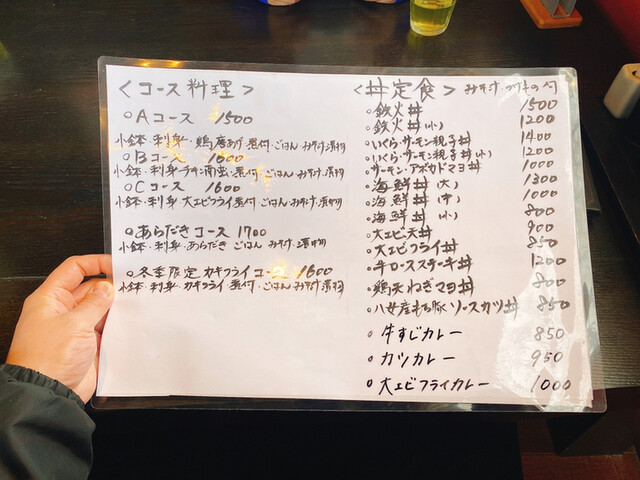 <コース料理>
○Aコース 1500
小鉢・刺身・鶏唐あげ・煮付・ごはん みそ汁・漬物
○Bコース 1600
小鉢・刺身・チキン南蛮・煮付・ごはん みそ汁・漬物
○Cコース 1600
小鉢・刺身 大エビフライ 煮付・ごはん みそ汁・漬物
○あらだきコース 1700
小鉢・刺身・あらだき ごはん みそ汁・漬物
○冬季限定 カキフライコース 1600
小鉢・刺身・カキフライ・煮付・ごはん みそ汁・漬物
<丼定食> みそ汁・
○鉄火丼 1500
○鉄火丼(小) 1200
○いくら・サーモン親子丼 1400
○いくら・サーモン親子丼(小) 1200
○サーモン・アボカドマヨ丼 1000
○海鮮丼(大) 1300
○海鮮丼(中) 1000
○海鮮丼(小) 800
○大エビ天丼 900
○大エビフライ丼 850
○牛ロースステーキ丼 1200
○鶏天ねぎマヨ丼 800
○八女産もち豚ソースカツ丼 850
○牛すじカレー 850
○カツカレー 950
○大エビフライカレー 1000